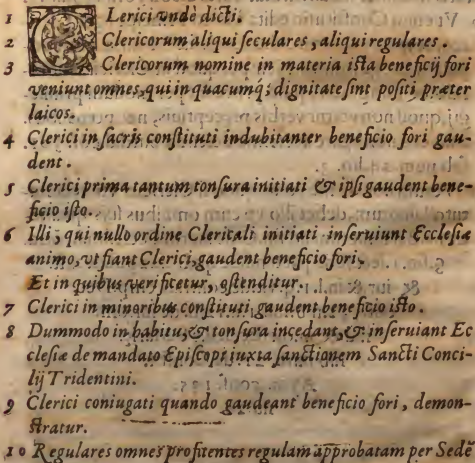 1 CLerici vnde dicti.
2 Clericorum aliqui seculares, aliqui regulares.
3 Clericorum nomine in materia ista beneficij fori
veniunt omnes, qui in quacumq; dignitate sint positi præter
laicos.
4 Clerici in sacris constituti indubitanter beneficio fori gau-
dent.
5 Clerici prima tantum tonsura initiati & ipsi gaudent bene-
ficio isto.
6 Illi; qui nullo ordine Clericali initiati inseruiunt Ecclesiæ
animo, vt fiant Clerici, gaudent beneficio fori.
Et in quibus verificetur, ostenditur.
7 Clerici in minoribus constituti gaudent beneficio isto.
8 Dummodo in habitu, & tonsura incedant, & inseruiant Ec
clesiæ de mandato Episcopi iuxta sanctionem Sancti Conci-
lij Tridentini.
9 Clerici coniugati quando gaudeant beneficio fori, demon-
stratur.
10 Regulares omnes profitentes regulam approbatam per Sedē